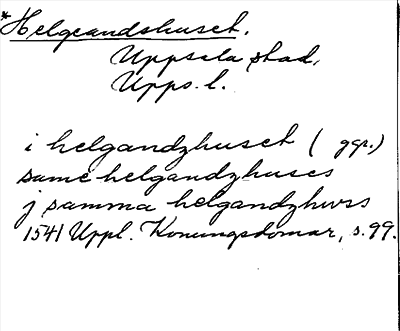 *Helgeandshuset.
Uppsala stad,
Upps. l.
i helgandzhuset ( ggr.)
samme helgandzhuses
j samma helgandzhwss
1541 Uppl. Konungsdomar, s. 99.